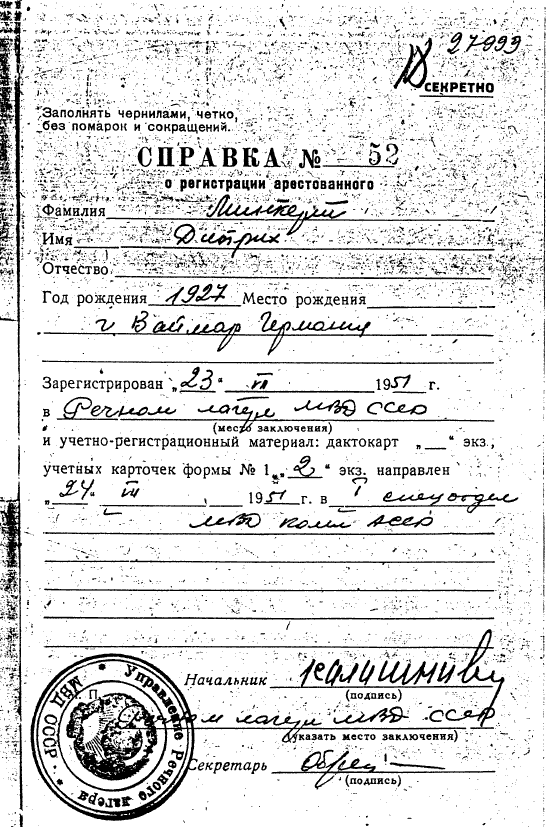 27999
СЕКРЕТНО
Заполнять чернилами, четко,
без помарок и сокращений.
СПРАВКА № 52
о регистрации арестованного
Фамилия
Имя Дитрих
Отчество
Год рождения 1927 Место рождения
г Ваймар Германия
Зарегистрирован „23“ VII 1951 г.
в Речном лагере МВД СССР
(место заключения)
и учетно-регистрационный материал: дактокарт „ “ экз.,
учетных карточек формы № 1 „2“ экз. направлен
„24“ VII 1951 г. в I спецотдел
МВД Коми АССР
Начальник
(подпись)
Речном лагере МВД СССР
(указать место заключения)
Секретарь
(подпись)
Управление Речного лагеря
МВД СССР